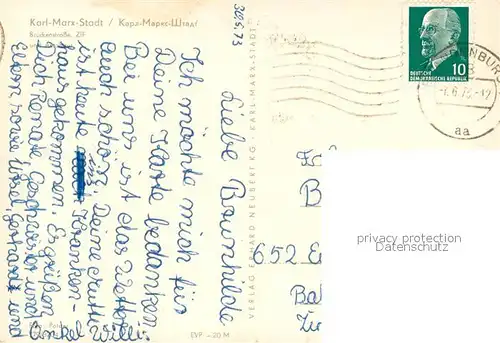 Karl-Marx-Stadt / Карл-Маркс-Штадт
Brückenstraße,
30.5.73
Liebe Brunhilde
Ich möchte mich für
Deine Karte bedanken.
Bei uns ist das Wetter
auch schön. Deine Mutti
ist heute ins Kranken-
haus gekommen. Es grüßen
Dich Renate Geschwister und
Eltern sowie und
Onkel Willi
VERLAG ERHARD NEUBERT KG · KARL-MARX-STADT
EVP -20 M
DEUTSCHE
DEMOKRATISCHE REPUBLIK
10
NBURG
aa
652
privacy protection
Datenschutz